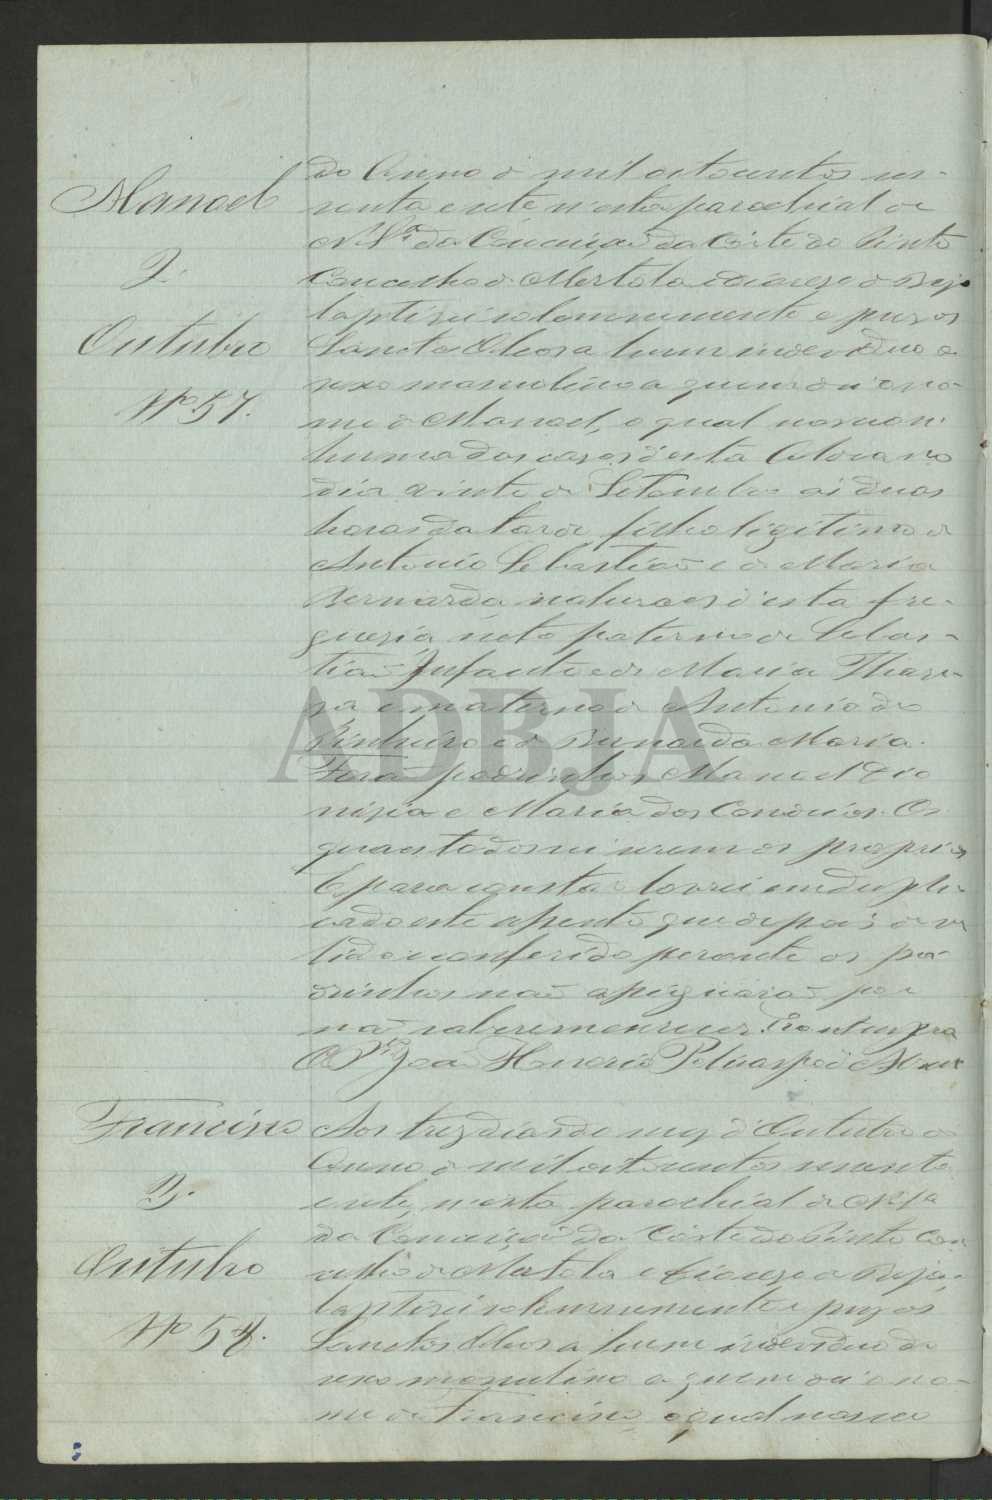 Manoel
J.
Outubro
Nº 57.
do Anno de mil oitocentos ses-
senta e sete n'esta parochial de
N. Sª da Conceição da Côrte do Pinto
Concelho de Mertola e Diocese de Beja
baptizei solemnemente e puz os
Sanctos Oleos a hum individuo do
sexo masculino a quem dei o no-
me de Manoel, o qual nasceu n'
huma das casas d'esta Aldeia no
dia vinte de Setembro ás duas
horas da tarde filho ligitimo de
Antonio Sebastião e de Maria
Bernarda, naturaes d'esta fre-
guezia, neto paterno de Sebas-
tião Infante e de Maria Thare-
za e materno de Antonio do
Pinheiro e de Bernarda Maria.
Forão padrinhos Manoel Dio
nizia e Maria dos Os
quaes todos sei serem os proprios
E para constar lavrei em dupli-
cado este assento que depois de
lido e conferido perante os pa-
drinhos não assignarão por
não saberem escrever. Era ut supra
O P. João Honorio
Francisco
J.
Outubro
Nº 58.
Aos trez dias do mez d'Outubro do
Anno de mil oitocentos sessenta
e sete, n'esta parochial de N. Sª
da Conceição da Côrte do Pinto Con
celho de Mertola e Diocese de Beja,
baptizei solemnemente e puz os
Sanctos Oleos a hum individuo do
sexo masculino a quem dei o no-
me de Francisco, o qual nasceu
ADBJA